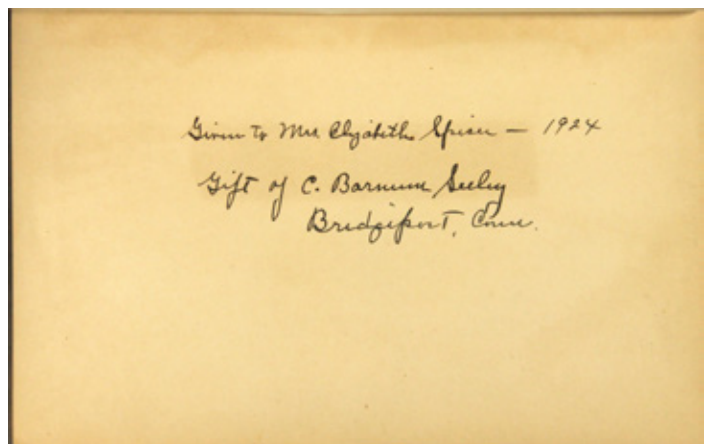 Given to Mrs Elizabeth Spicer — 1924
Gift of C. Barnum Seeley
Bridgeport, Conn.